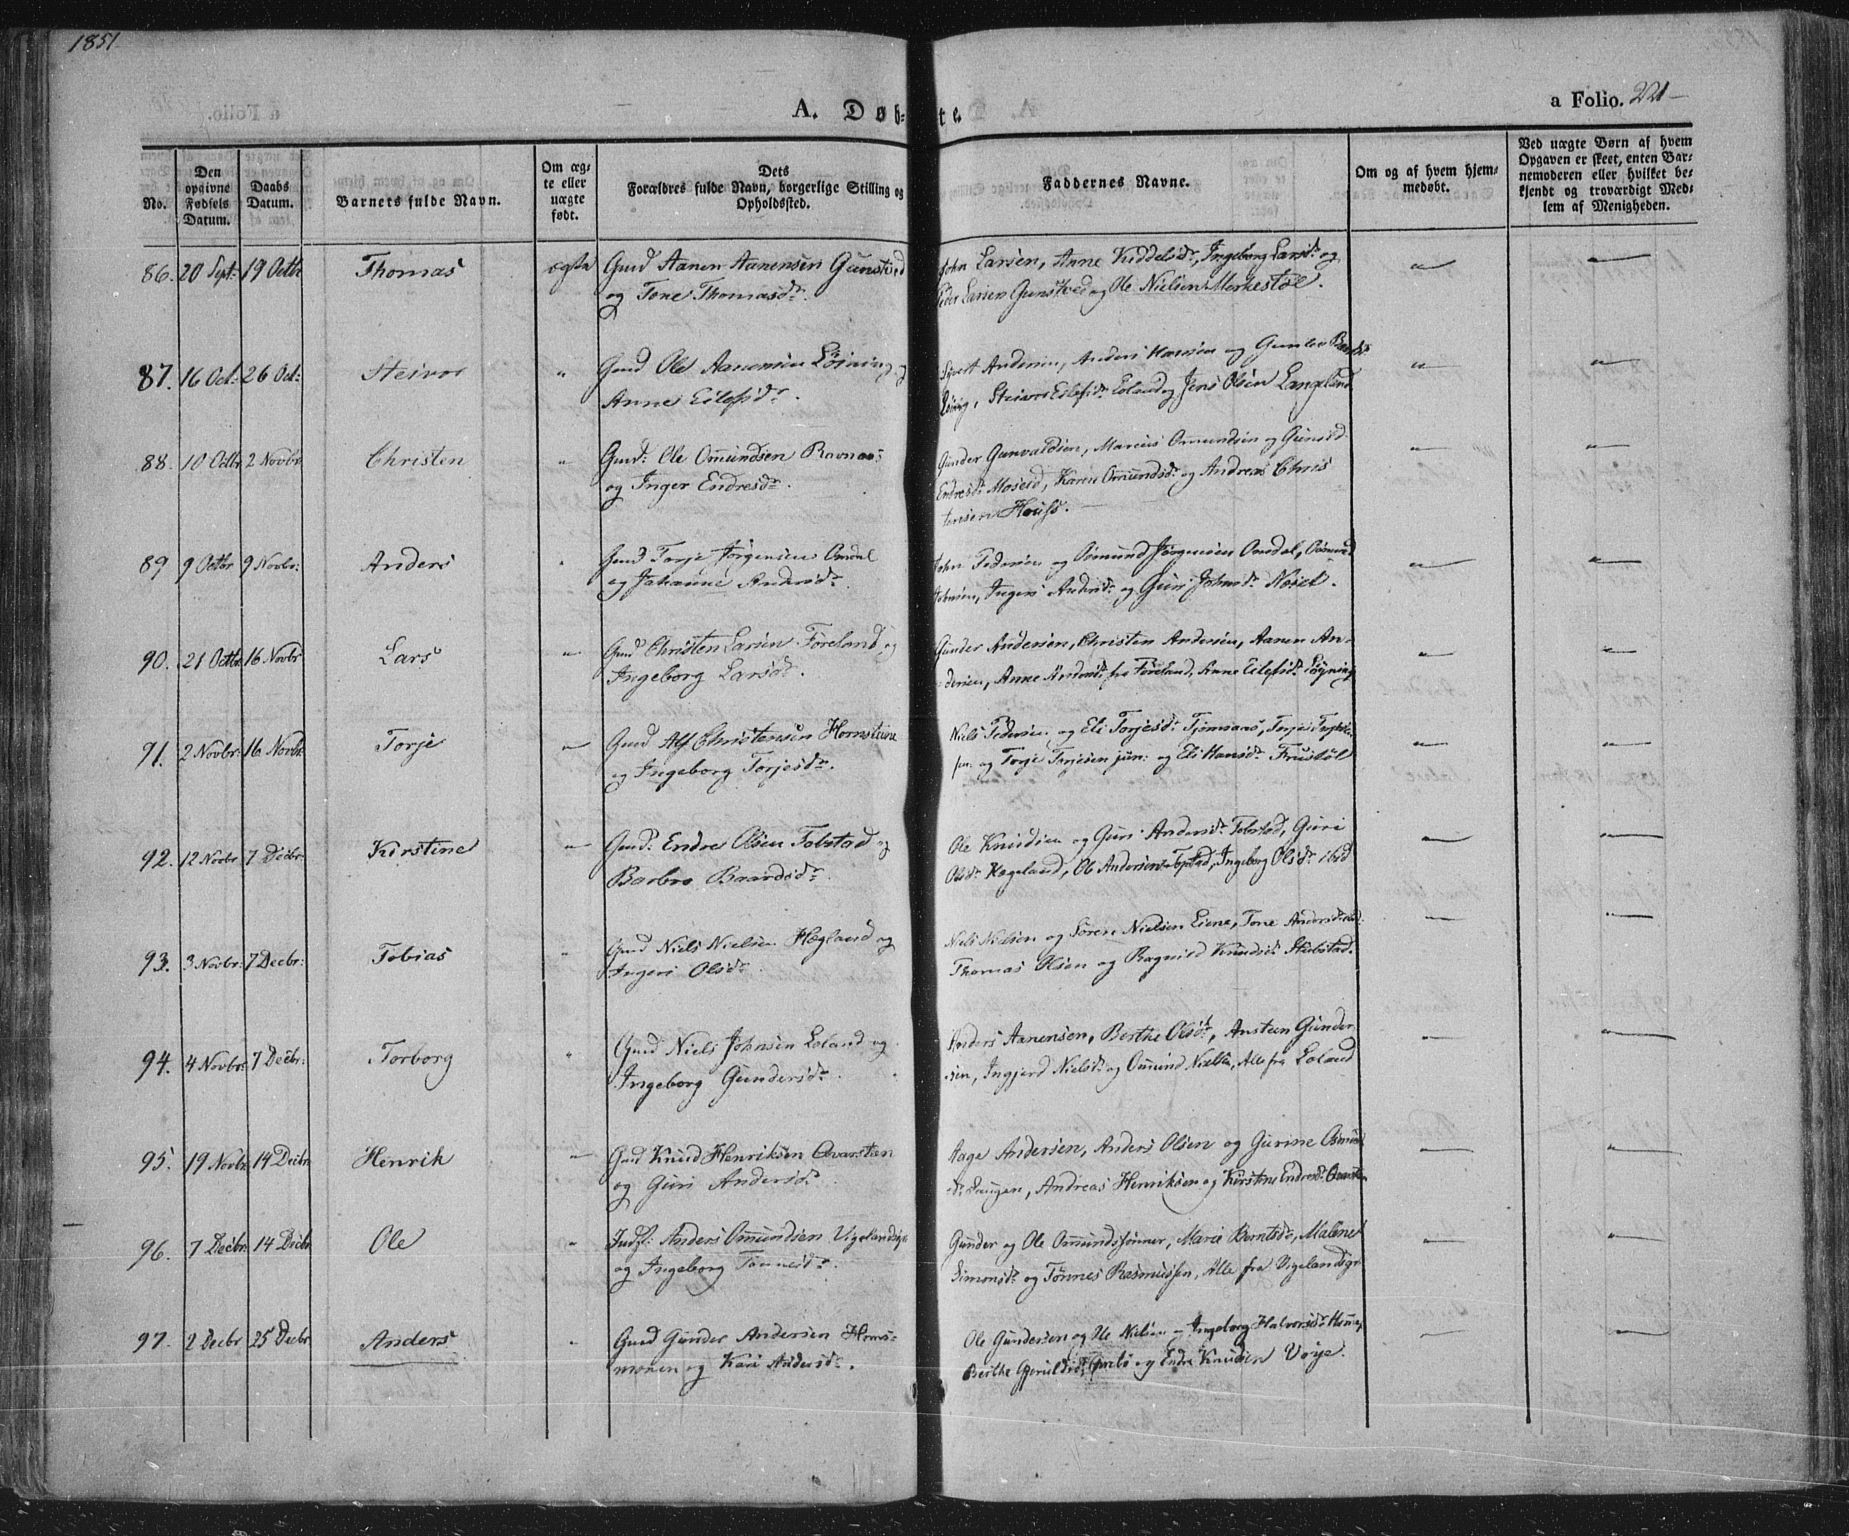 1851
A. Døb-
te.
a Folio. 221
No.
Den opgivne Fødsels Datum.
Daabs Datum.
Barnets fulde Navn.
Om ægte eller uægte født.
Dets Forældres fulde Navn, borgerlige Stilling og Opholdssted.
Faddernes Navne.
Om og af hvem hjemmedøbt.
Ved uægte Børn af hvem Opgaven er skeet, enten Barnemoderen eller hvilket bekjendt og troværdigt Medlem af Menigheden.
86. 20 Sept: 19 Octbr Thomas ægte Gmd Aanen Aanensen Gunstved
og Tone Thomasdr.
John Larsen, Anne Kiddelsdr, Ingeborg Larsdr og
Peder Larsen Gunstved og Ole Nielsen Merkestøl.
87. 16 Oct: 26 Oct: Steivor " Gmd Ole Aanensen Løining og
Anne Eilefsdr.
Sivert Andersen, Anders Hansen og Gunlov
Steivor Eilefsdr Eeland og Jens Olsen Langeland
88. 10 Octbr 2 Novbr Christen " Gmd: Ole Omundsen Ravnaas
og Inger Endresdr.
Gunder Gunvaldsen, Marcus Omundsen og Gunild
Endresdr Moseid, Karen Omundsdr og Andreas Chris
tensen
89 9 Octbr 9 Novbr: Anders " Gmd Torje Jørgensen Omdal
og Johanne Andersdr.
John Pedersen og Osmund Jørgensen Omdal, Osmund
Johnsen, Inger Andersdr og Guri Johnsdr
90. 21 Octbr 16 Novbr Lars " Gmd Christen Larsen Føreland og
Ingeborg Larsdr.
Gunder Andersen, Christen Andersen, Aanen An-
dersen, Anne Andersdr fra Føreland, Anne Eilefsdr Løyning
91. 2 Novbr: 16 Novbr. Torje " Gmd Alf Christensen Hornstiene
og Ingeborg Torjesdr.
Niels Pedersen og Eli Torjesdr
sen og Torje Torjesen jun: og Eli Hansdr Frustøl
92. 12 Novbr 7 Decbr: Kirstine " Gmd: Endre Olsen Tobstad og
Barbro Baardsdr.
Ole Knudsen og Guri Andersdr Tobstad, Guri
Olsdr Hægeland, Ole Andersen Topstad, Ingeborg Olsdr ibid
93. 3 Novbr: 7 Decbr: Tobias " Gmd Niels Nielsen Hægland og
Ingeri Olsdr.
Niels Nielsen og Søren Nielsen Eiene, Tone Andersdr
Thomas Olsen og Ragnild Knudsdr Stubstad.
94. 4 Novbr: 7 Decbr: Torborg " Gmd Niels Johnsen Loland og
Ingeborg Gundersdr.
Anders Aanensen, Berthe Olsdr, Ansteen Gunder
sen, Ingjerd Nielsdr og Omund Nielsen, Alle fra Loland
95. 19 Novbr 14 Decbr Henrik " Gmd Knud Henriksen Qvarsten
og Guri Andersdr.
Aage Andersen, Anders Olsen og Gurine Osmund
Andreas Henriksen og Kirstine Endresdr
96. 7 Decbr: 14 Decbr Ole " Indst: Anders Omundsen Vigeland
og Ingeborg Tønnesdr.
Gunder og Ole Omundssønner, Marie Berntsdr, Malene
Simonsdr og Tønnes Rasmussen, Alle fra Vigeland
97. 2 Decbr 25 Decbr Anders " Gmd Gunder Andersen Homs-
monen og Kari Andersdr.
Ole Gundersen og Ole Nielsen og Ingeborg Halvorsdr
Berthe Gjeruldsdr og Endre Knudsen Voije